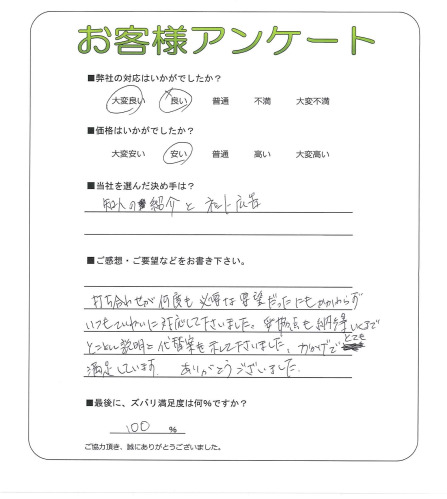 お客様アンケート
■弊社の対応はいかがでしたか？
大変良い 良い 普通 不満 大変不満
■価格はいかがでしたか？
大変安い 安い 普通 高い 大変高い
■当社を選んだ決め手は？
知人の紹介とネット広告
■ご感想・ご要望などをお書き下さい。
打ち合わせが何度も必要な要望だったにもかかわらず
いつもていねいに対応して下さいました。妥協点も納得いくまで
とことん説明と代替案を示して下さいました。おかげで とても
満足しています。 ありがとうございました。
■最後に、ズバリ満足度は何％ですか？
100 ％
ご協力頂き、誠にありがとうございました。